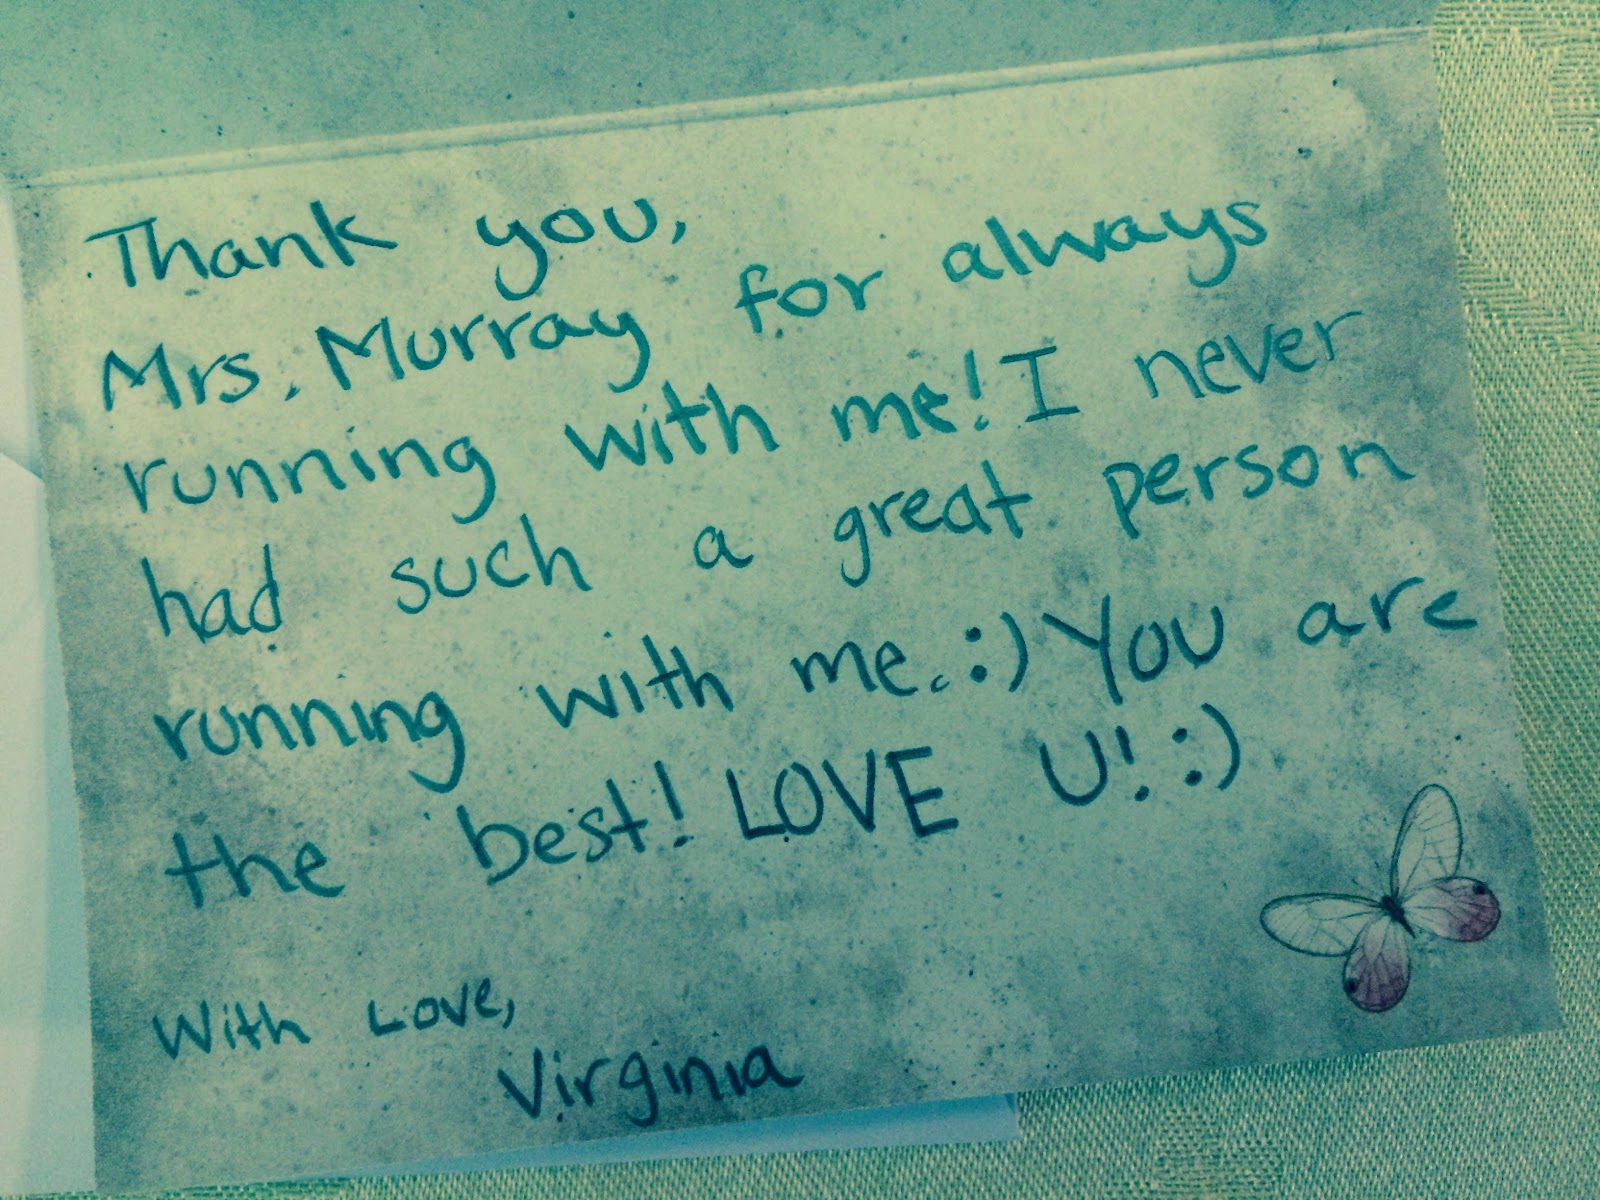 Thank you,
Mrs. Murray for always
running with me! I never
had such a great person
running with me. :) You are
the best! LOVE U! :)
With Love,
Virginia